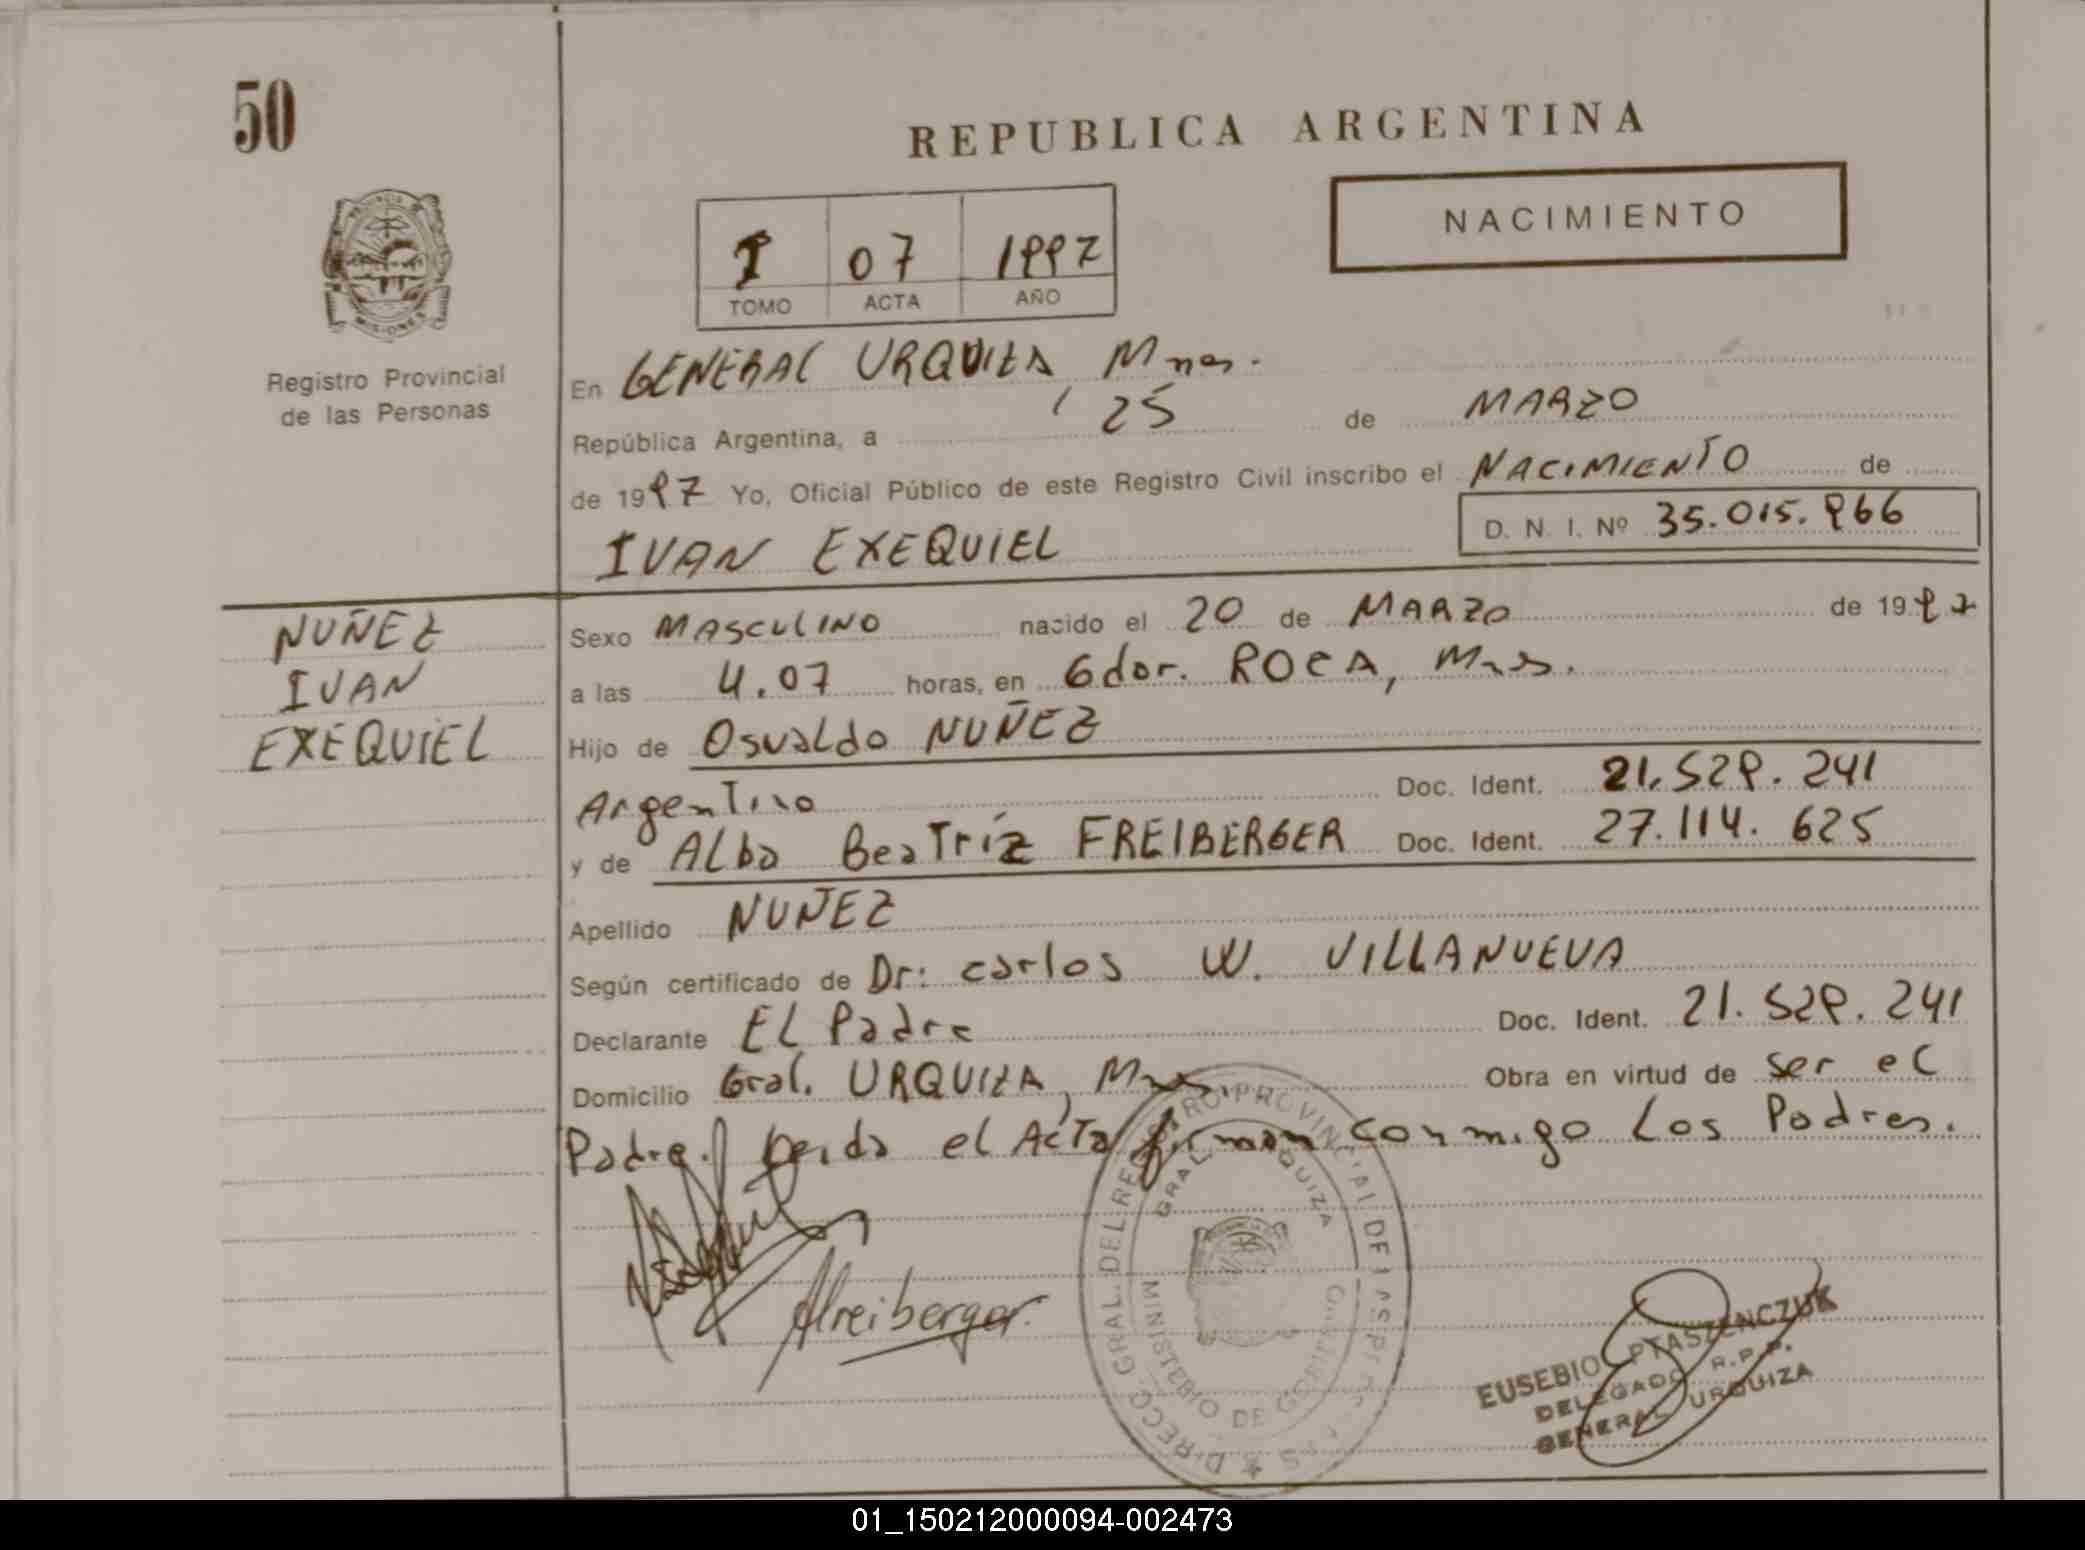 50
REPUBLICA ARGENTINA
NACIMIENTO
I 07 1997
TOMO ACTA AÑO
PROVINCIA DE MISIONES
Registro Provincial
de las Personas
En GENERAL URQUIZA, Mnes.
República Argentina, a 25 de MARZO
de 1997 Yo, Oficial Público de este Registro Civil inscribo el NACIMIENTO de
IVAN EXEQUIEL D. N. I. Nº 35.015.966
NUÑEZ
IVAN
EXEQUIEL
Sexo MASCULINO nacido el 20 de MARZO de 1997
a las 4.07 horas, en Gdor. ROCA, Mnes.
Hijo de Osvaldo NUÑEZ
Argentino Doc. Ident. 21.529.241
y de Alba Beatríz FREIBERGER Doc. Ident. 27.114.625
Apellido NUÑEZ
Según certificado de Dr: Carlos W. VILLANUEVA
Declarante El Padre Doc. Ident. 21.529.241
Domicilio Gral. URQUIZA, Mnes. Obra en virtud de ser el
Padre. Leida el Acta firman conmigo los Padres.
Afreiberger.
DIRECC. GRAL. DEL REGISTRO PROVINCIAL DE LAS PERSONAS
GRAL. URQUIZA
MINISTERIO DE GOBIERNO
EUSEBIO PTASZENCZUK
DELEGADO R.P.P.
GENERAL URQUIZA
01_150212000094-002473